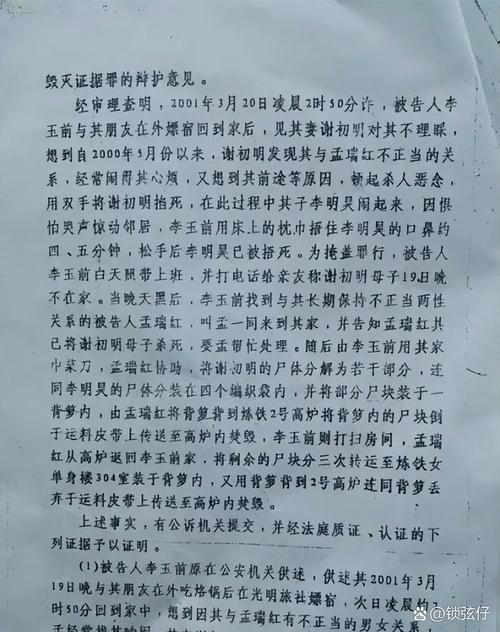 毁灭证据罪的辩护意见。
经审理查明，2001年3月20日凌晨2时50分许，被告人李
玉前与其朋友在外嫖宿回到家后，见其妻谢初明对其不理睬，
想到自2000年5月份以来，谢初明发现其与孟瑞红不正当的关
系，经常闹得其心烦，又想到其前途等原因，顿起杀人恶念，
用双手将谢初明掐死，在此过程中其子李明昊闹起来，因惧
怕哭声惊动邻居，李玉前用床上的枕巾捂住李明昊的口鼻约
四、五分钟，松手后李明昊已被捂死。为掩盖罪行，被告人
李玉前白天照常上班，并打电话给亲友称谢初明母子19日晚
不在家。当晚天黑后，李玉前找到与其长期保持不正当两性
关系的被告人孟瑞红，叫孟一同来到其家，并告知孟瑞红其
已将谢初明母子杀死，要孟帮忙处理。随后由李玉前用其家
中菜刀，孟瑞红协助，将谢初明的尸体分解为若干部分，连
同李明昊的尸体分装在四个编织袋内，并将部分尸块装于一
背箩内，由孟瑞红将背箩背到炼铁2号高炉将背箩内的尸块倒
于运料皮带上传送至高炉内焚毁，李玉前则打扫房间，孟瑞
红从高炉返回李玉前家，将剩余的尸块分三次转运至炼铁女
单身楼304室装于背箩内，又用背箩背到2号高炉连同背箩丢
弃于运料皮带上传送至高炉内焚毁。
上述事实，有公诉机关提交，并经法庭质证、认证的下
列证据予以证明。
(1)被告人李玉前原在公安机关供述，供述其2001年3月
19日晚与其朋友在外吃烙锅后在光明旅社嫖宿，次日凌晨2
时50分回到家中，想到因其与孟瑞红有不正当的男女关系
@锁弦仔